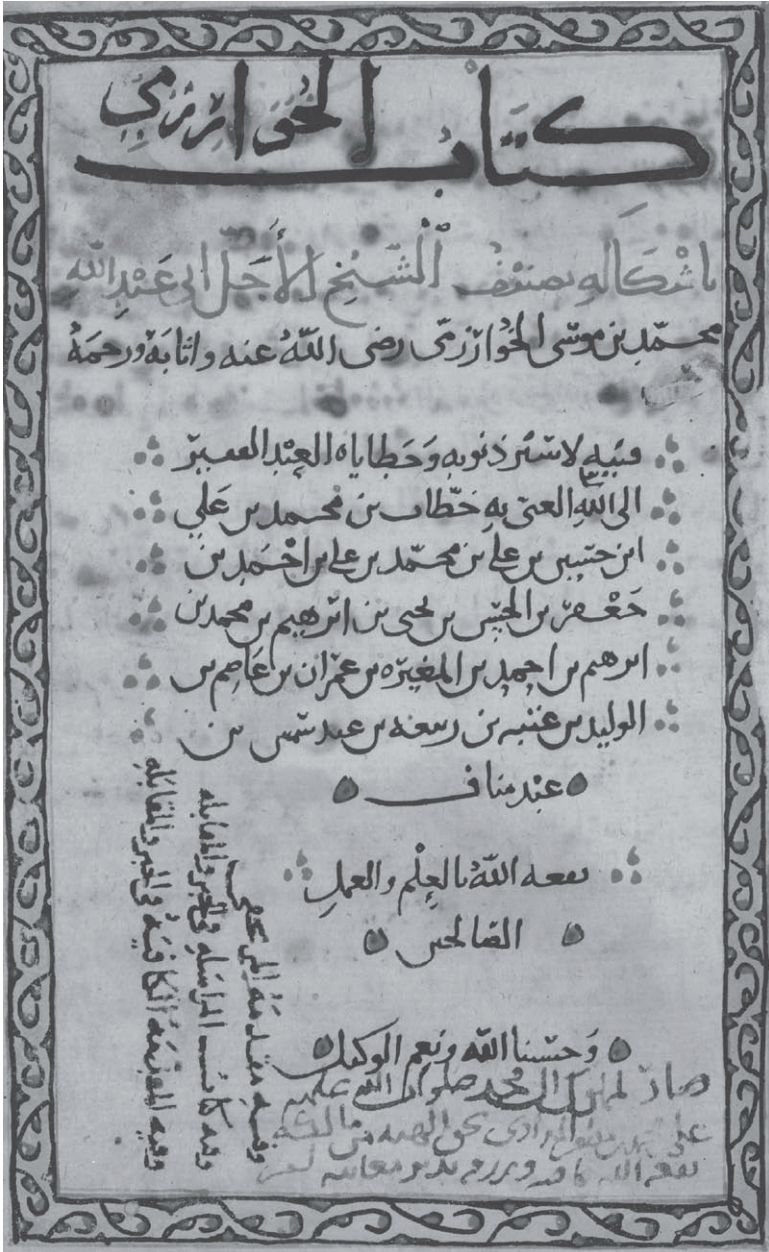 كتاب الخوارزمي
باشكاله تصنيف الشيخ الأجل ابي عبد الله
محمد بن موسى الخوارزمي رضى الله عنه واثابه ورحمه
ذنوبه وخطاياه العبد الفقير
الى الله الغنى به خطاب بن محمد بن علي
ابن حسين بن علي بن محمد بن علي بن احمد بن
جعفر بن الحسن بن يحيى بن ابرهيم بن محمد بن
ابرهيم بن احمد بن المغيرة بن عمران بن عاصم بن
الوليد بن عتبه بن ربيعه بن عبد شمس بن
عبد مناف
نفعه الله بالعلم والعمل
الصالحين
وحسبنا الله ونعم الوكيل
صار ال محمد صلوات الله عليهم
على بحق الهبه من
نفعه الله
وفيه مقدمة
وفيه كتاب في الجبر والمقابله
وفيه المقدمة الكافية في الجبر والمقابله